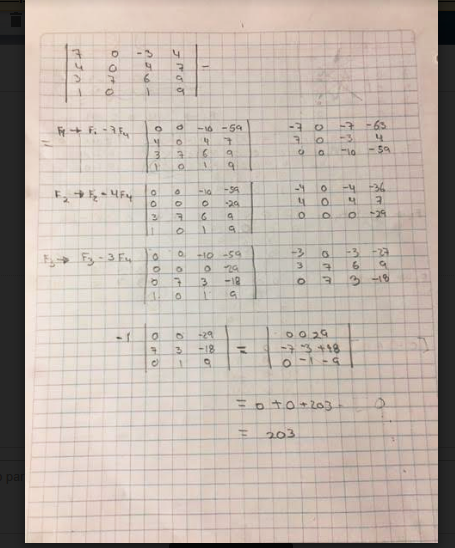 7 0 -3 4
4 0 4 7 -
3 7 6 9
1 0 1 9
= F1 → F1 - 7F4
0 0 -10 -59
4 0 4 7
3 7 6 9
1 0 1 9
-7 0 -7 -63
7 0 -3 4
0 0 -10 -59
F2 → F2 - 4F4
0 0 -10 -59
0 0 0 -29
3 7 6 9
1 0 1 9
-4 0 -4 -36
4 0 4 7
0 0 0 -29
F3 → F3 - 3F4
0 0 -10 -59
0 0 0 29
0 7 3 -18
1 0 1 9
-3 0 -3 -27
3 7 6 9
0 7 3 -18
-1
0 0 -29
7 3 -18
0 1 9
=
0 0 29
-7 -3 +18
0 -1 -9
= 0 + 0 + 203
= 203